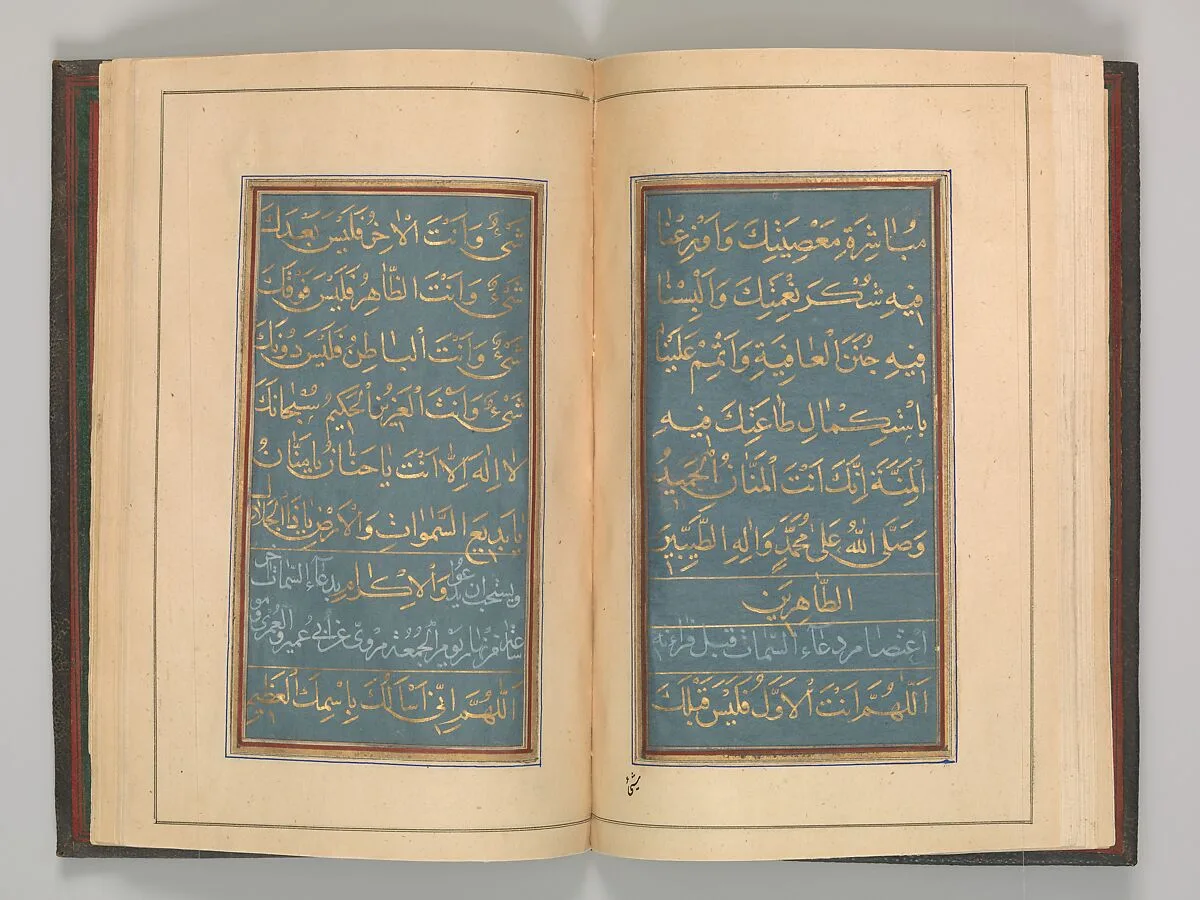 مُبَاشَرَةِ مَعْصِيَتِكَ وَاَوْزِعْنَا
فِيهِ شُكْرَ نِعْمَتِكَ وَاَلْبِسْنَا
فِيهِ جُنَنَ الْعَافِيَةِ وَاَتْمِمْ عَلَيْنَا
بِاسْتِكْمَالِ طَاعَتِكَ فِيهِ
الْمِنَّةَ اِنَّكَ اَنْتَ الْمَنَّانُ الْحَمِيدُ
وَصَلَّى اللهُ عَلَى مُحَمَّدٍ وَاٰلِهِ الطَّيِّبِينَ
الطَّاهِرِينَ
دعاء السمات قبل قراءته
اَللّٰهُمَّ اَنْتَ الْاَوَّلُ فَلَيْسَ قَبْلَكَ
شئ
شَىْءٌ وَاَنْتَ الْاٰخِرُ فَلَيْسَ بَعْدَكَ
شَىْءٌ وَاَنْتَ الظَّاهِرُ فَلَيْسَ فَوْقَكَ
شَىْءٌ وَاَنْتَ الْبَاطِنُ فَلَيْسَ دُونَكَ
شَىْءٌ وَاَنْتَ الْعَزِيزُ الْحَكِيمُ سُبْحَانَكَ
لَا اِلٰهَ اِلَّا اَنْتَ يَا حَنَّانُ يَا مَنَّانُ
يَا بَدِيعَ السَّمٰوَاتِ وَالْاَرْضِ يَا ذَا الْجَلَالِ
وَالْاِكْرَامِ ويستحب ان يدعو بدعاء السمات اخر
ساعة من نهار يوم الجمعة مروى عن ابى عمرو العمرى
اَللّٰهُمَّ اِنِّى اَسْاَلُكَ بِاسْمِكَ الْعَظِيمِ